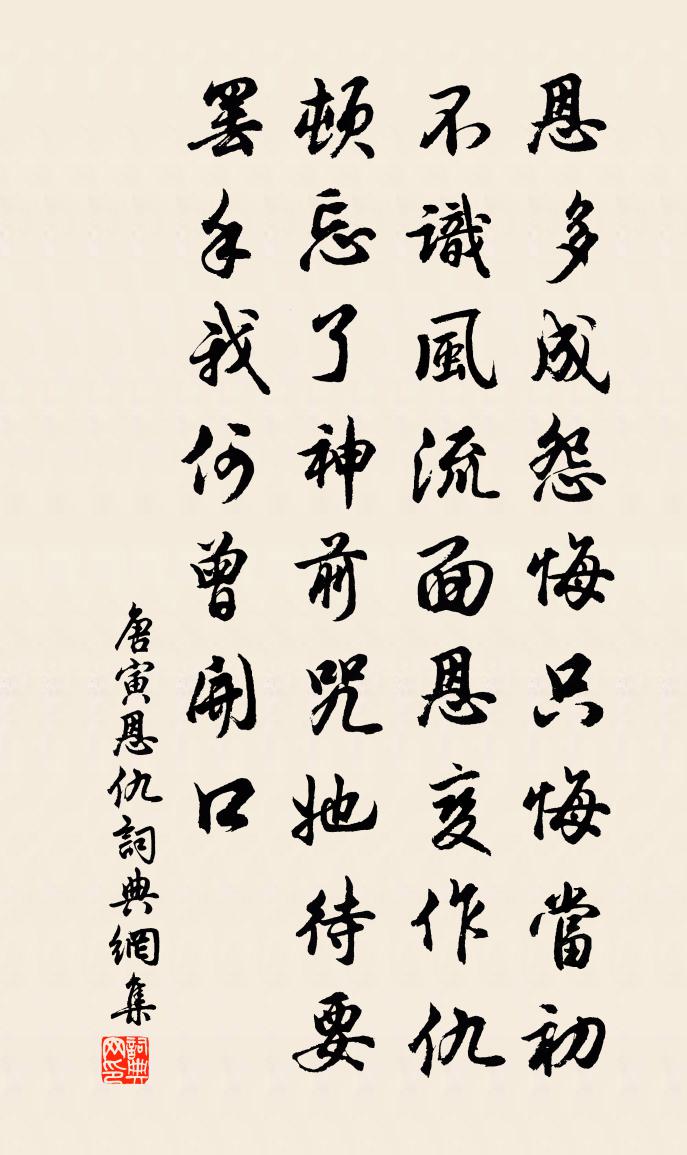 恩多成怨悔只悔當初
不識風流面恩変作仇
頓忘了神前咒她待要
罢手我何曾開口
唐寅恩仇詞典網集
詞典网印